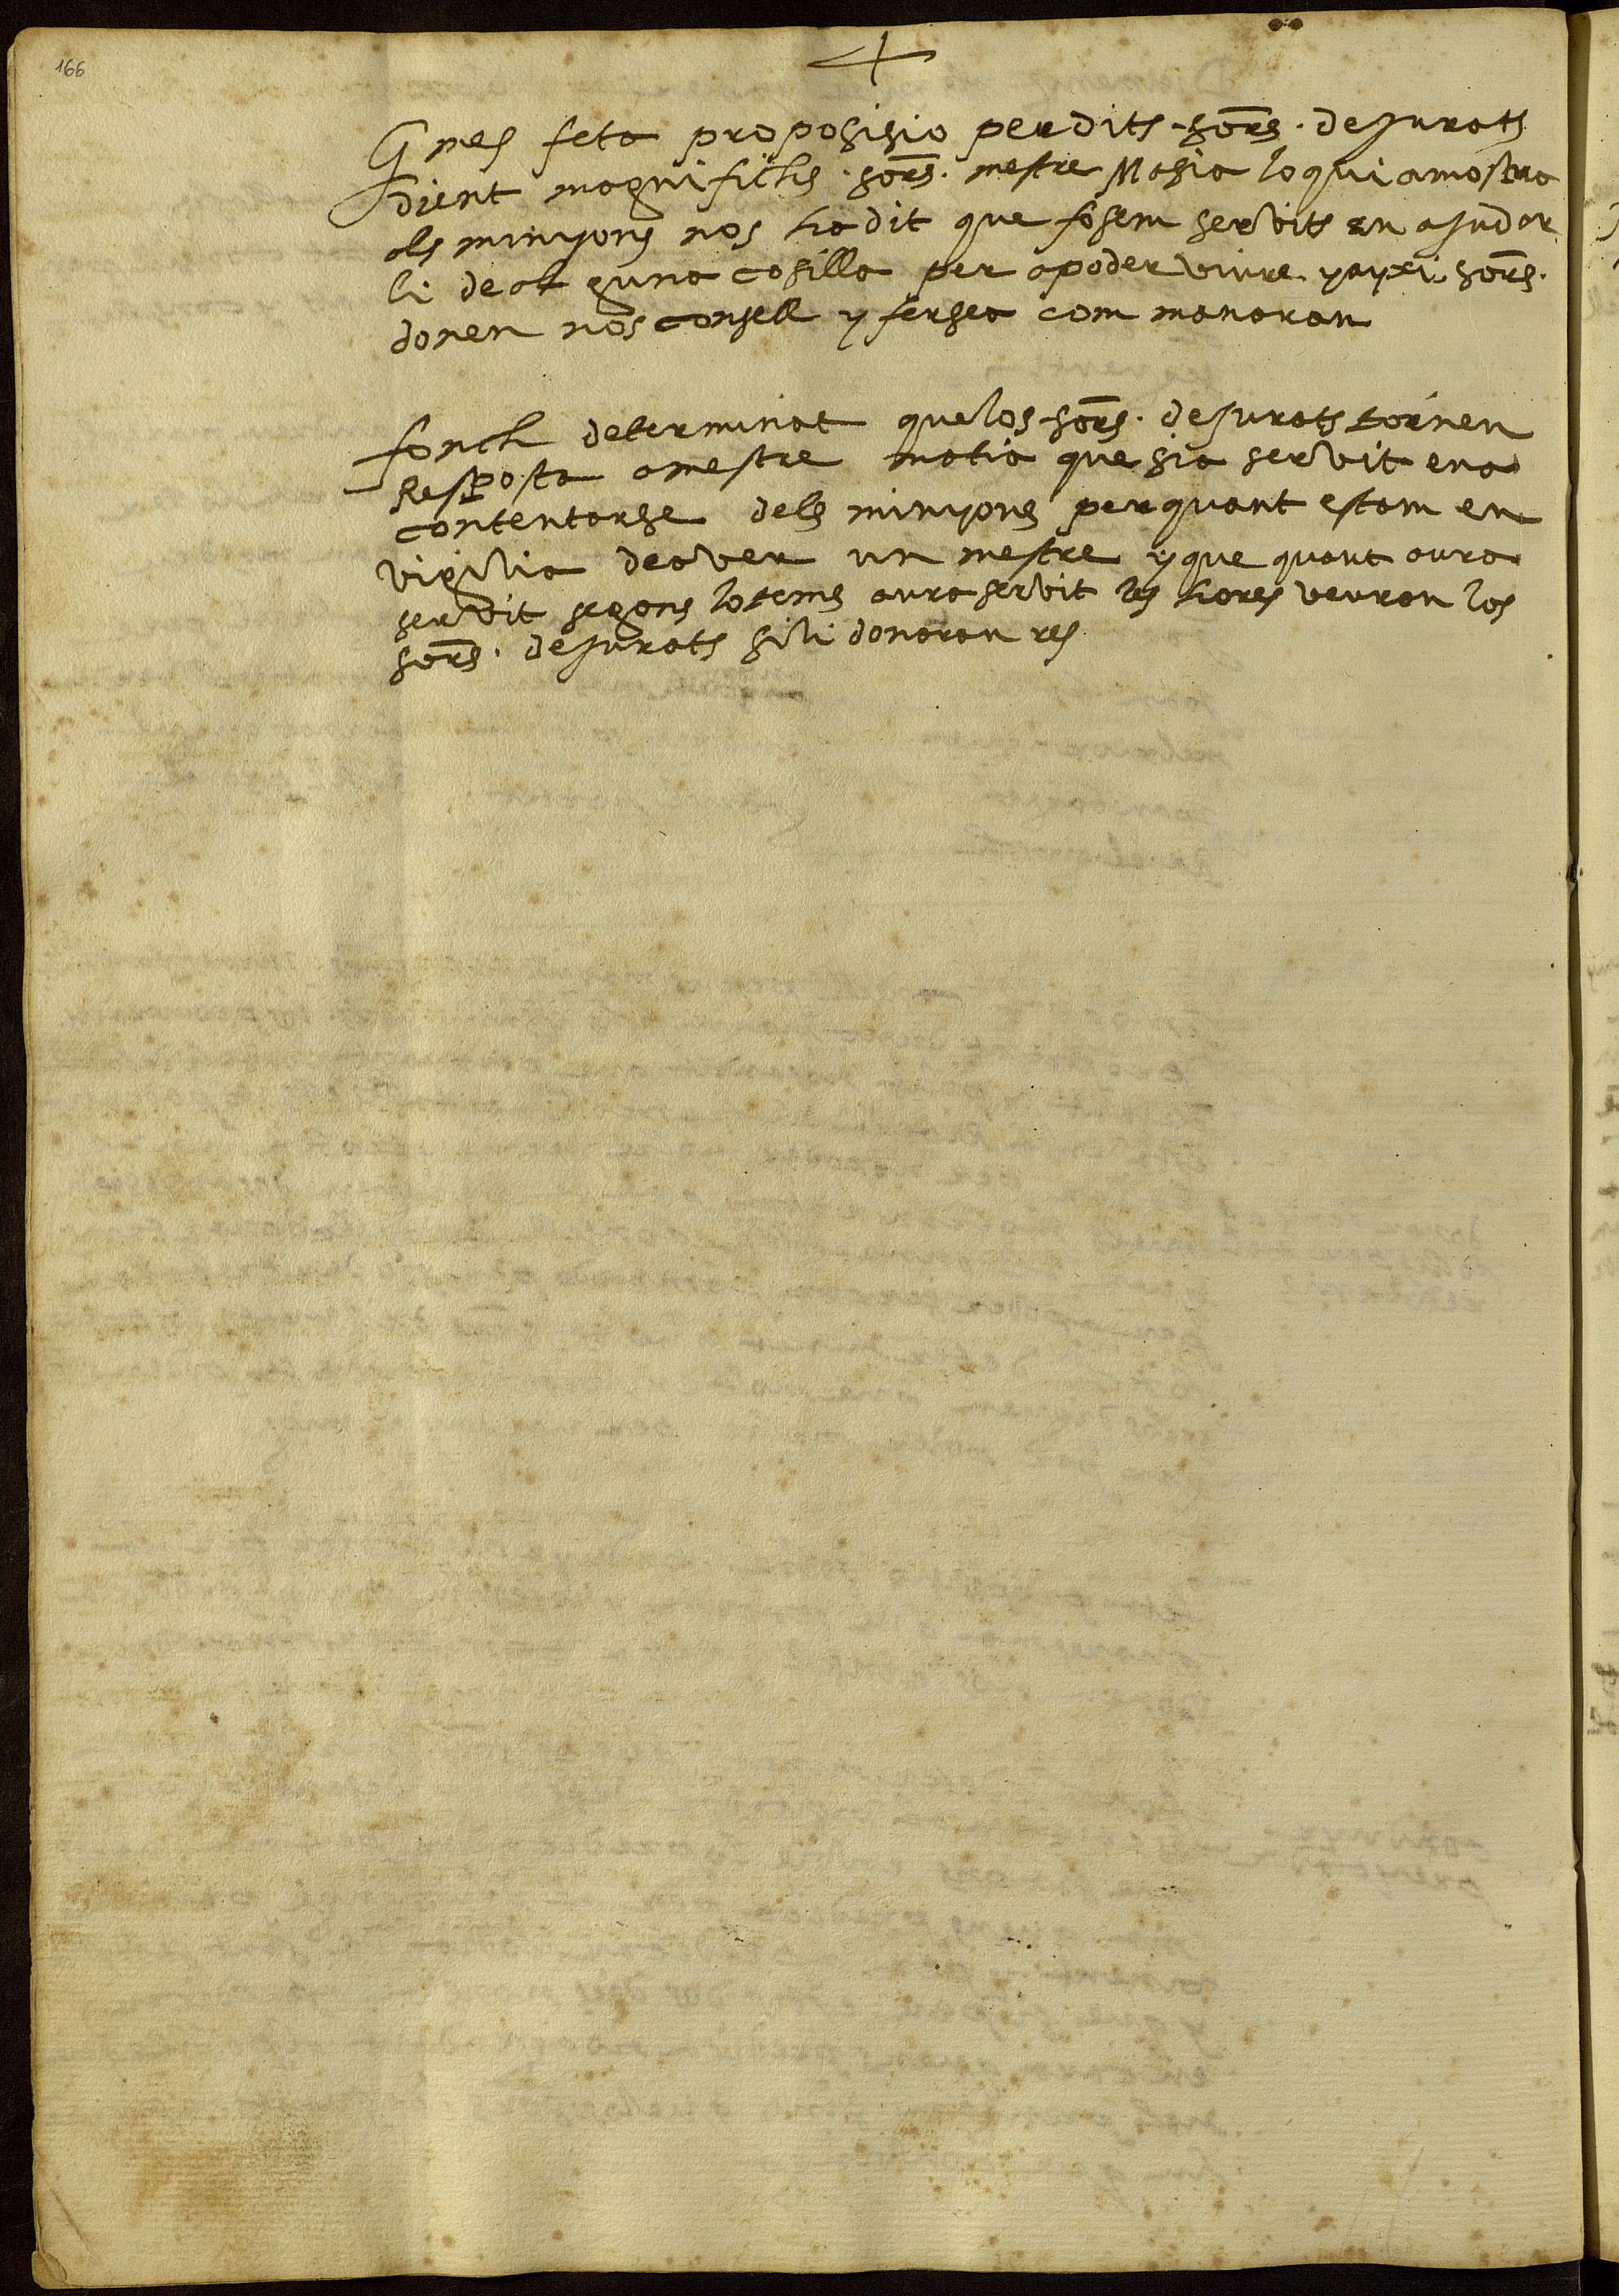 166
G mes feta proposisio per dits sors. de Jurats
dient magnifichs. sors. mestre Masia lo qui amostra
als minyons nos ha dit que fosem servits en aJudar
li de alguna cosilla per apoder viure y ayxi sors.
donen nos consell y ferhea com manaran
fonch determinat que los sors. de Jurats tornen
Resposta a mestre matia que sia servit en a
contentarse dels minyons per quant estam en
vigilia de aver un mestre y que quant aura
servit segons lo tems aura servit les hores veuran los
sors. de Jurats si li donaran res